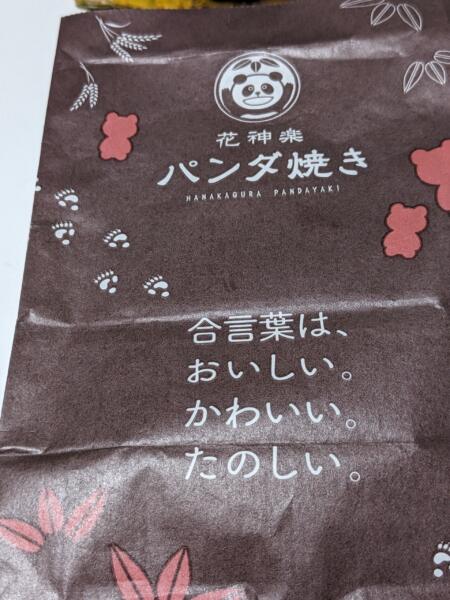 花神楽
パンダ焼き
HANAKAGURA PANDAYAKI
合言葉は、
おいしい。
かわいい。
たのしい。